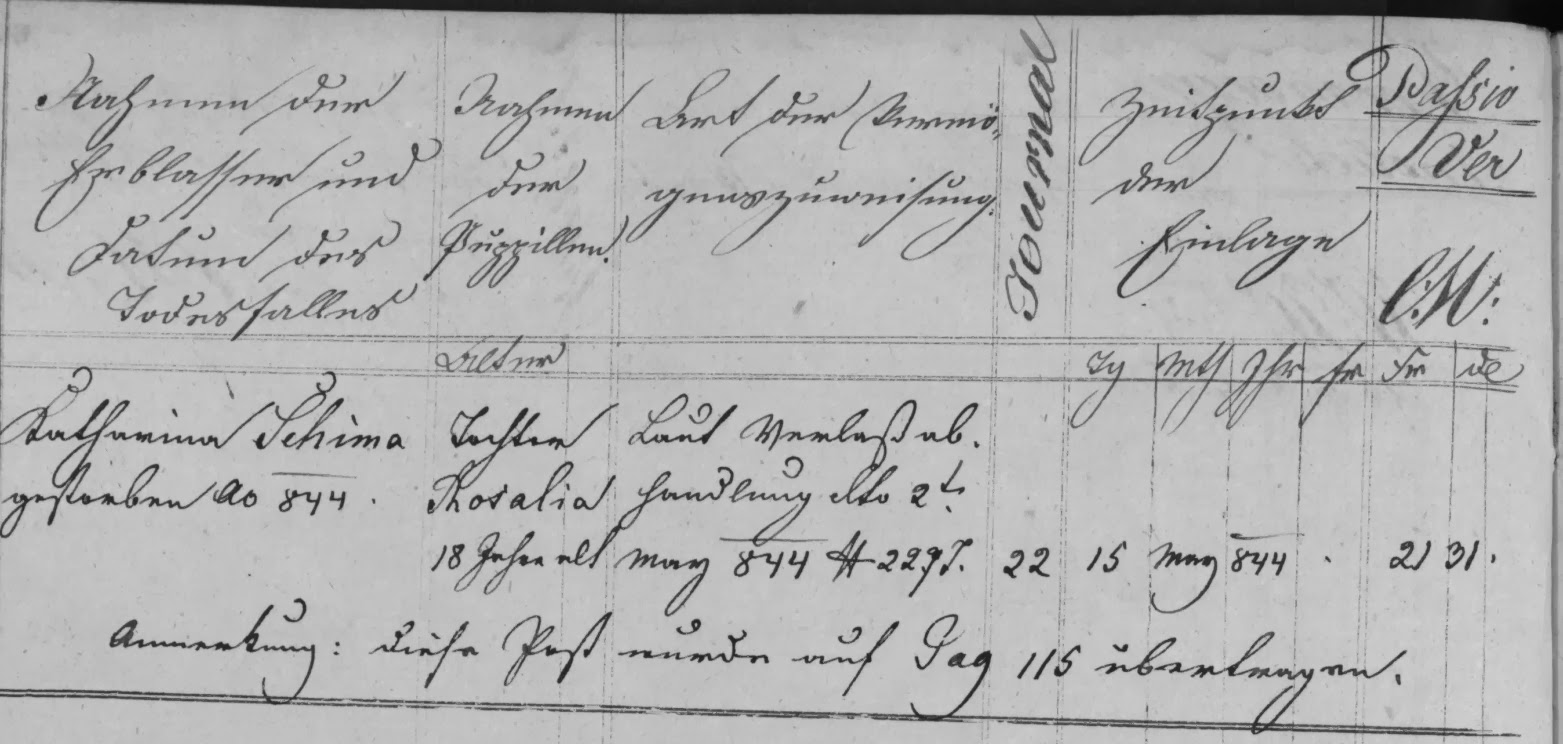 Nahmen der
Erblasser und
Datum des
Todesfalles
Nahmen
der
Puppillen.
Alter
Art der Vermö-
genszuweisung.
Journal
Zeitpunkt
der
Einlage
Tg Mth Jhr fr
Passiv
Ver
C.M:
Fr
Katharina Schima
gestorben Ao 844.
Tochter
Rosalia
18 Jahre alt
Laut Verlaß ab.
handlung dto 2t.
May 844 # 229J.
22 15 May 844 . 21 31.
Anmerkung: diese Post wurde auf Pag 115 übertragen.